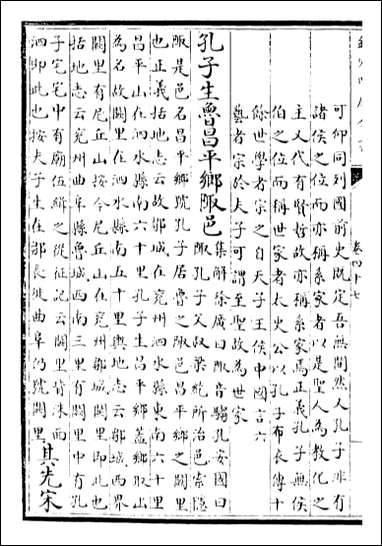 可仰同列國前史既定吾無間然人孔子非有
諸侯之位而亦稱系家者以是聖人為教化之
主又代有賢哲故亦稱系家焉正義孔子無侯
伯之位而稱世家者太史公以孔子布衣傳十
餘世學者宗之自天子王侯中國言六
藝者宗於夫子可謂至聖故為世家
孔子生魯昌平鄉陬邑
集解徐廣曰陬音騶孔安國曰
陬孔子父叔梁紇所治邑索隱
陬是邑名昌平鄉號孔子居魯之陬邑昌平鄉之闕里
也正義括地志云故鄒城在兖州泗水縣東南六十里
昌平山在泗水縣南六十里孔子生昌平鄉蓋鄉取山
為名故闕里在泗水縣南五十里輿地志云鄒城西界
闕里有尼丘山按今尼丘山在兖州鄒城闕里即此也
括地志云兖州曲阜縣魯城西南三里有闕里中有孔
子宅宅中有廟伍緝之從征記云闕里背洙面
泗即此也按夫子生在鄒長徙曲阜仍號闕里
其先宋
卷四十七